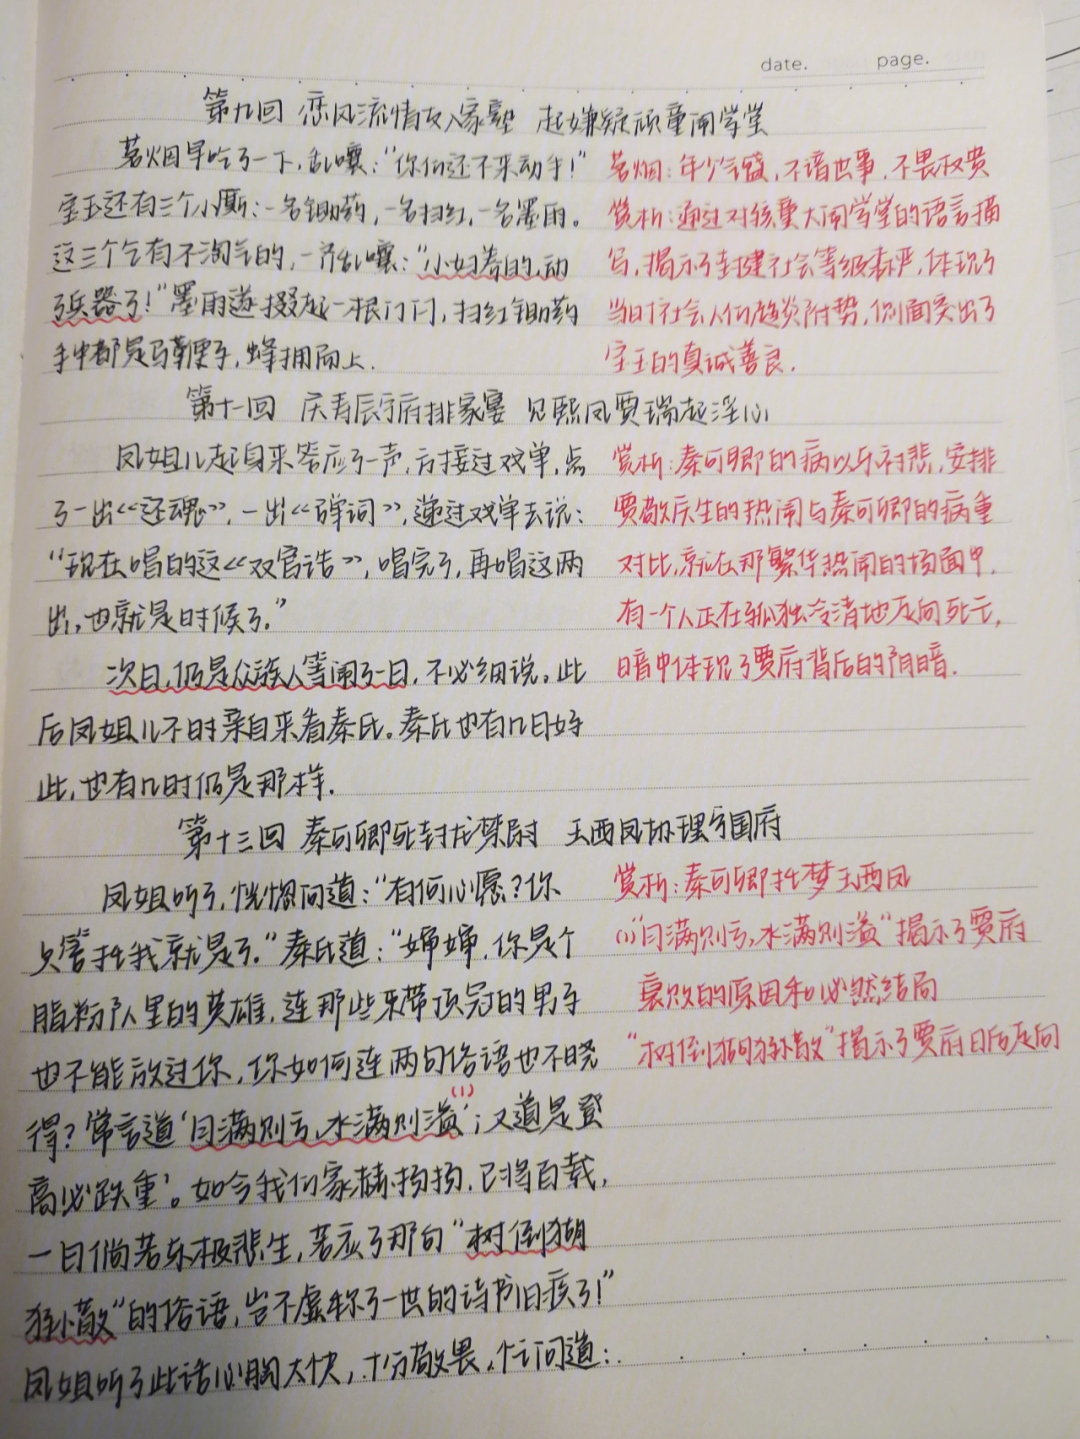 date. page.
第九回 恋风流情友入家塾 起嫌疑顽童闹学堂
茗烟早吃了一下,乱嚷:“你们还不来动手!”
宝玉还有三个小厮:一名锄药,一名扫红,一名墨雨。
这三个岂有不淘气的,一齐乱嚷:“小妇养的,动
了兵器了!”墨雨遂掇起一根门闩,扫红锄药
手中都是马鞭子,蜂拥而上.
茗烟:年少气盛,不谙世事,不畏权贵
赏析:通过对孩童大闹学堂的语言描
写,揭示了封建社会等级森严,体现了
当时社会人们趋炎附势,侧面突出了
宝玉的真诚善良.
第十一回 庆寿辰宁府排家宴 见熙凤贾瑞起淫心
凤姐儿起身来答应了一声,方接过戏单,点
了一出《还魂》,一出《弹词》,递过戏单去说:
“现在唱的这《双官诰》,唱完了,再唱这两
出,也就是时候了.”
次日,仍是众族人等闹了一日,不必细说。此
后凤姐儿不时亲自来看秦氏。秦氏也有几日好
些,也有几时仍是那样.
赏析:秦可卿的病以乐衬悲,安排
贾敬庆生的热闹与秦可卿的病重
对比,就在那繁华热闹的场面中,
有一个人正在孤独冷清地走向死亡,
暗中体现了贾府背后的阴暗.
第十三回 秦可卿死封龙禁尉 王西凤协理宁国府
凤姐听了,恍惚问道:“有何心愿?你
只管托我就是了.”秦氏道:“婶婶,你是个
脂粉队里的英雄,连那些束带顶冠的男子
也不能放过你,你如何连两句俗语也不晓
得?常言道‘月满则亏,水满则溢’(1);又道是登
高必跌重’。如今我们家赫扬扬,已将百载,
一日倘若乐极悲生,若应了那句“树倒猢
狲散”的俗语,岂不虚称了一世的诗书旧族了!”
凤姐听了此话心胸大快,十分敬畏,忙问道:
赏析:秦可卿托梦王西凤
(1)“月满则亏,水满则溢”揭示了贾府
衰败的原因和必然结局
“树倒猢狲散”揭示了贾府日后走向